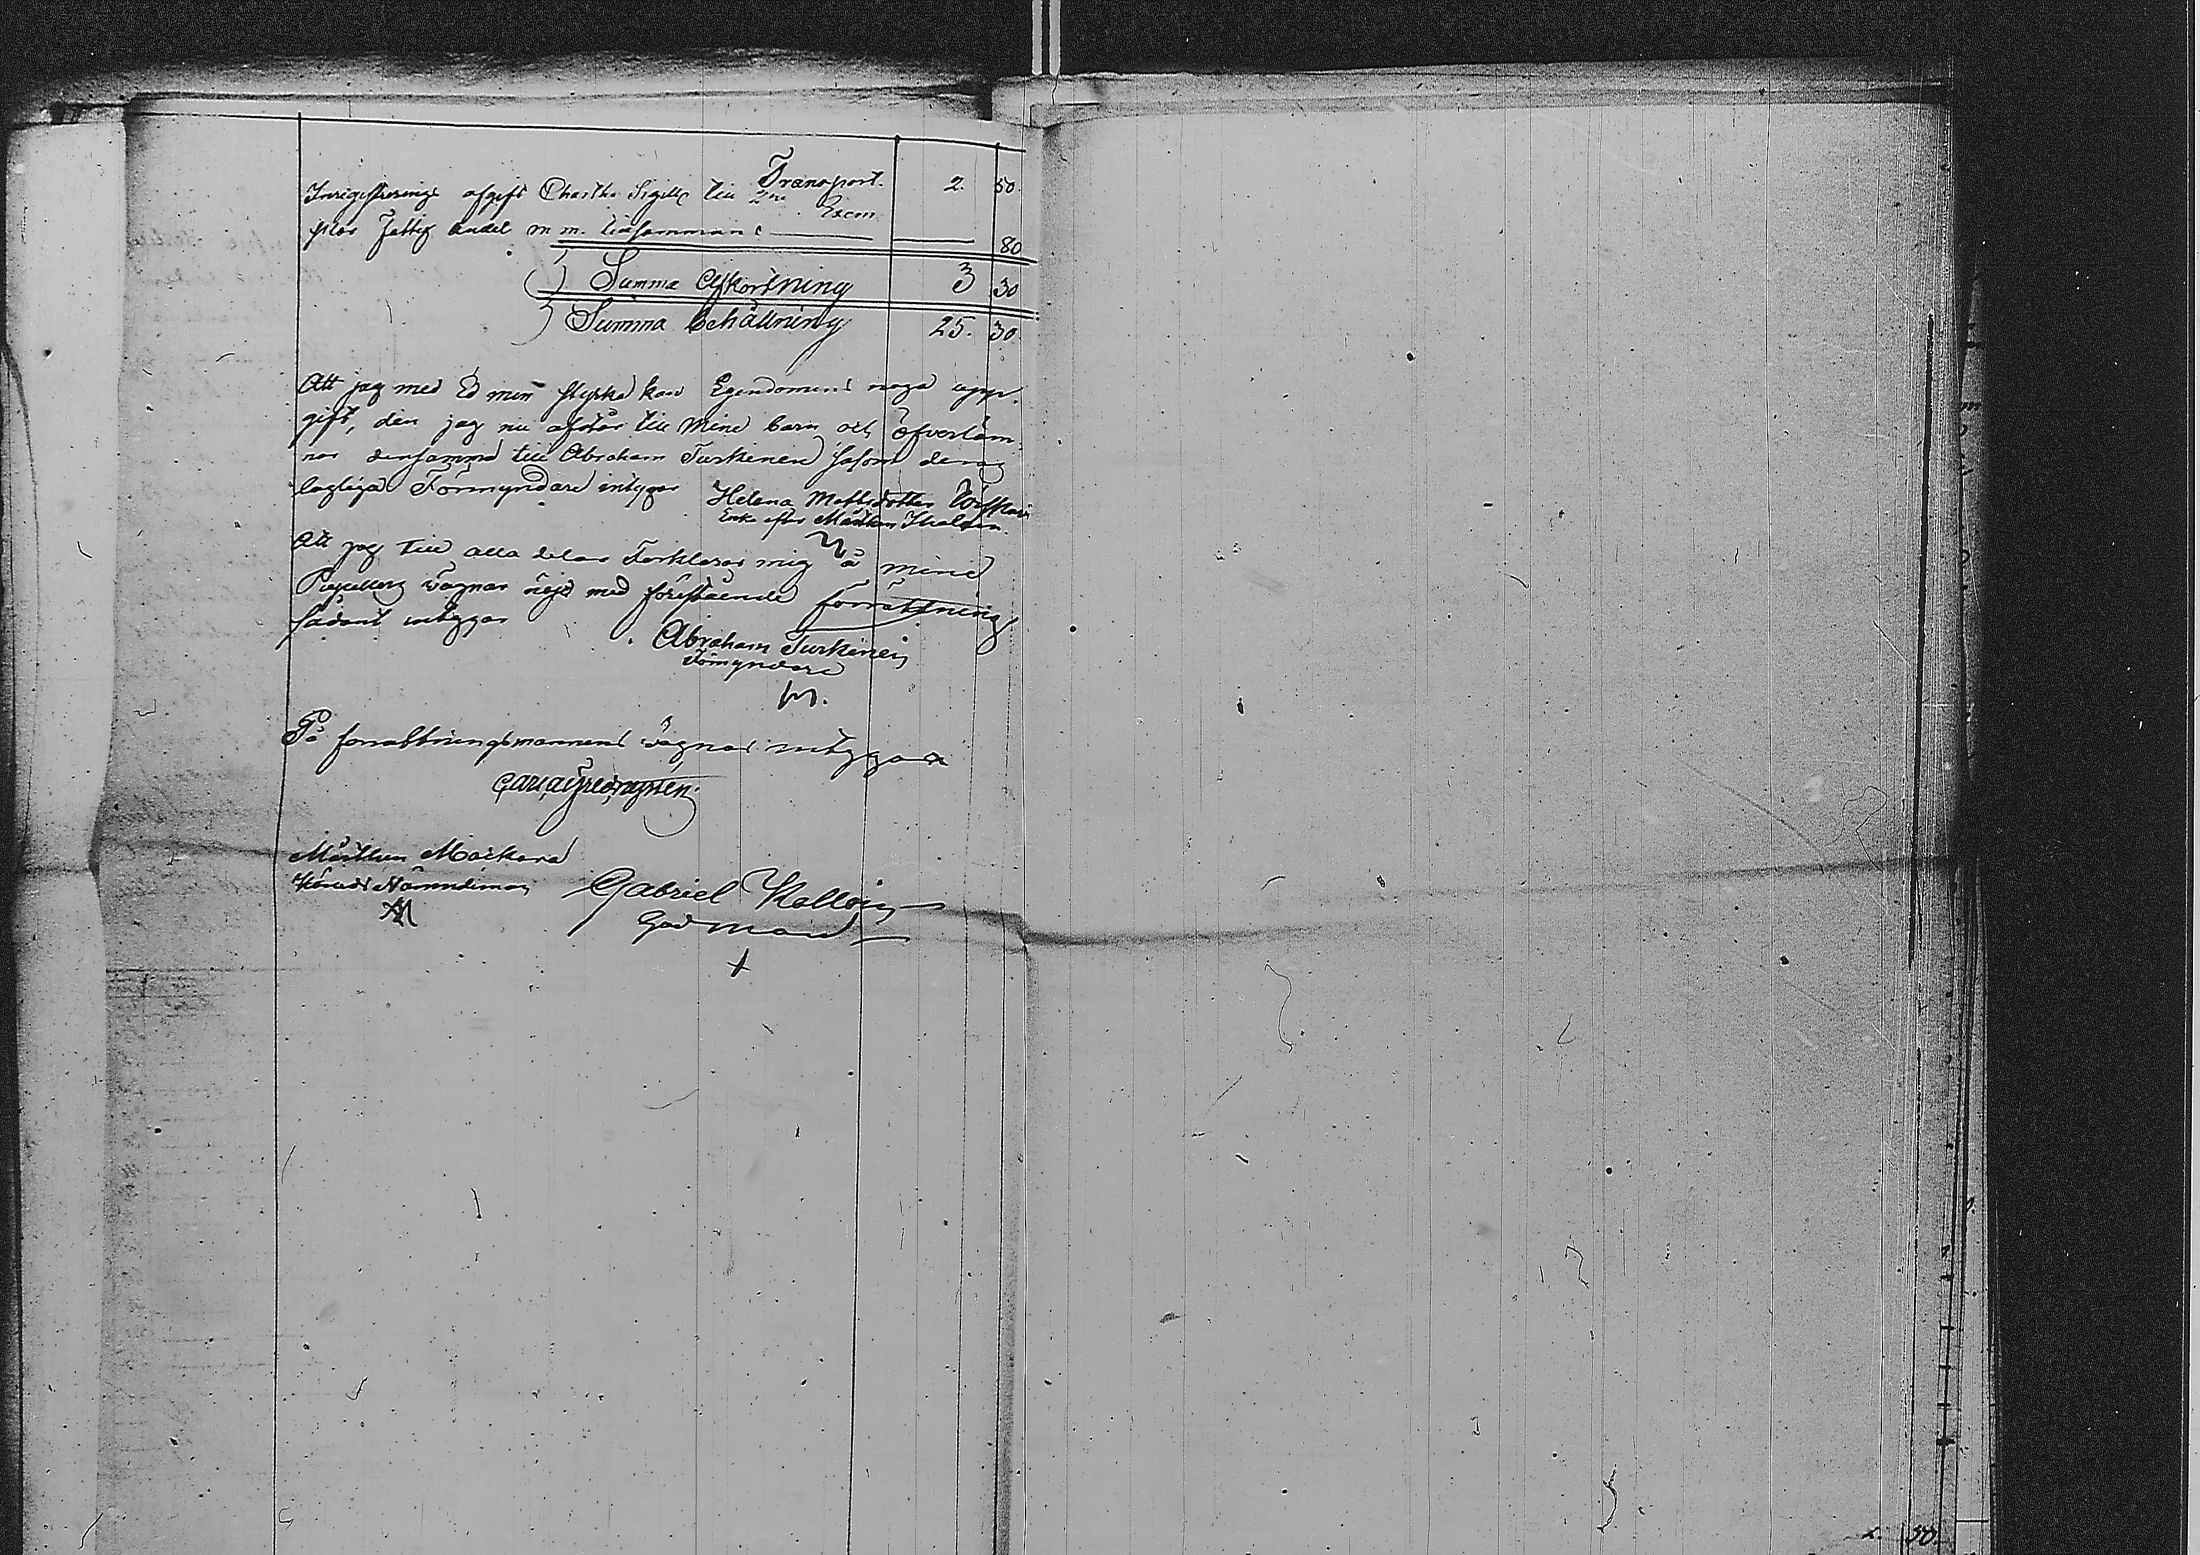 Transport. 2. 50.
Inregistrerings afgift Chartha Sigill till 2ne Exem
plar Fattig Andel m m. tillsammans 80
Summa Afkortning 3 30
Summa behållning 25. 30.
Att jag med Ed min styrka kan Egendomens noga upp
gift, den jag nu afstår till Mine barn och öfverläm
nar densamma till Abraham Turkinen såsom deras
lagliga Förmyndare intygar Helena Mattsdotter
Enka efter Mårthen
Att jag till alla delar Förklarar mig å mine
Pupillers vägnar nöjd med föreståendе förrättning
sådant intygar
Abraham Turkinen
Förmyndare
På förrättningsmannens vägnar intygar
Mårthen
Härads Nämndeman
Gabriel
God man
+
50.